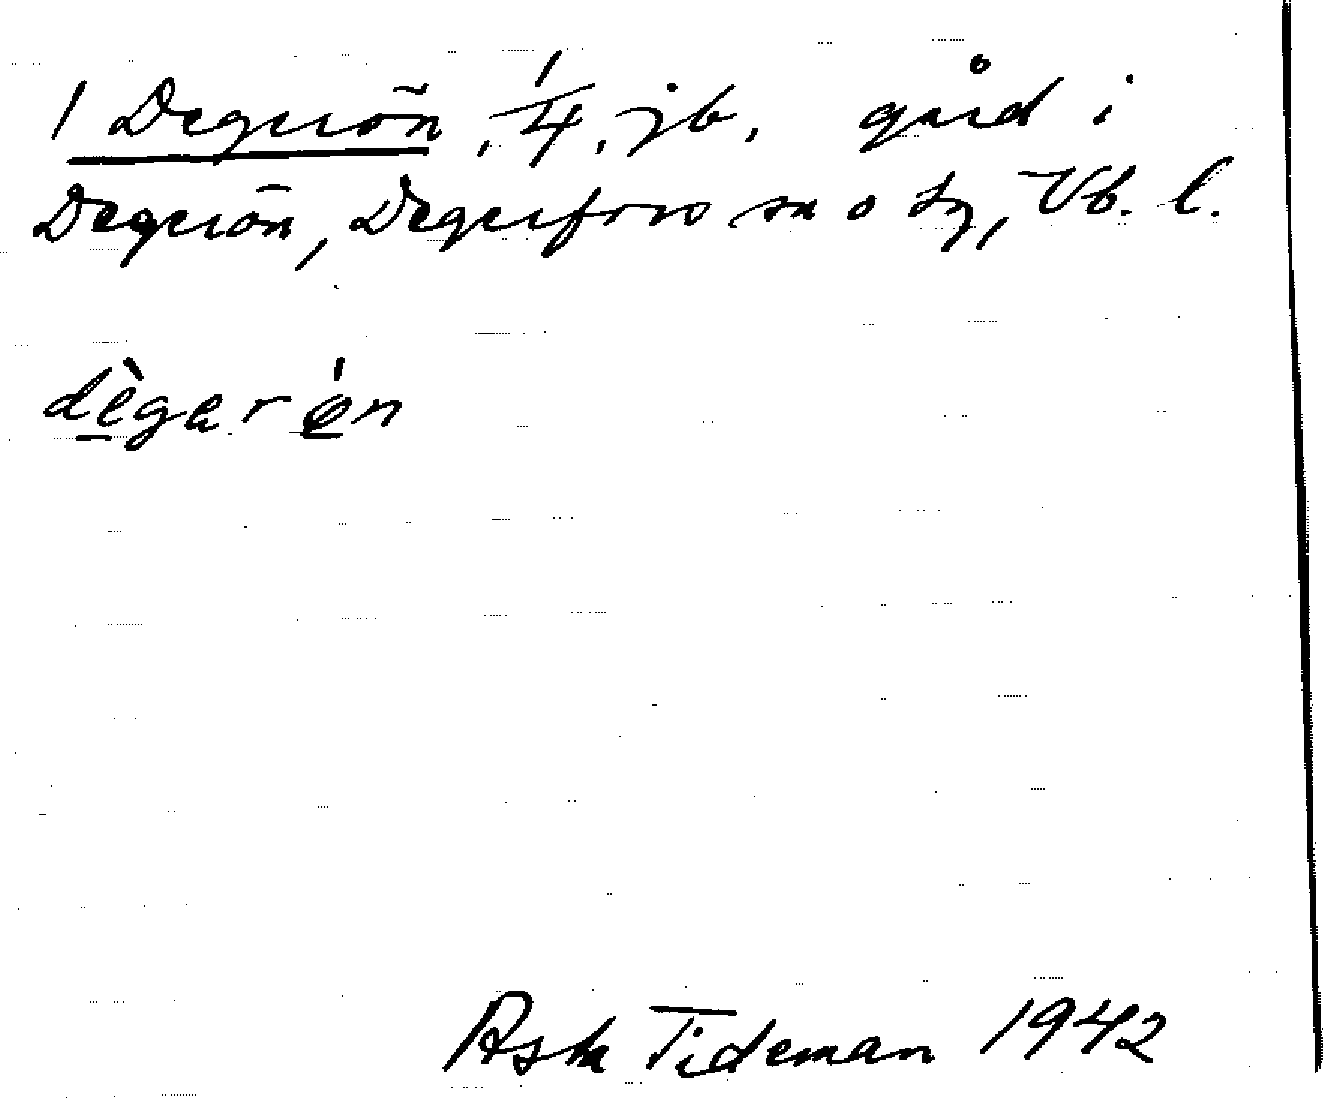 1 Degerön, 1/4, jb, gård i
Degerön, Degerfors sn o tg, Vb. l.
dègerǿn
Ask Tideman 1942